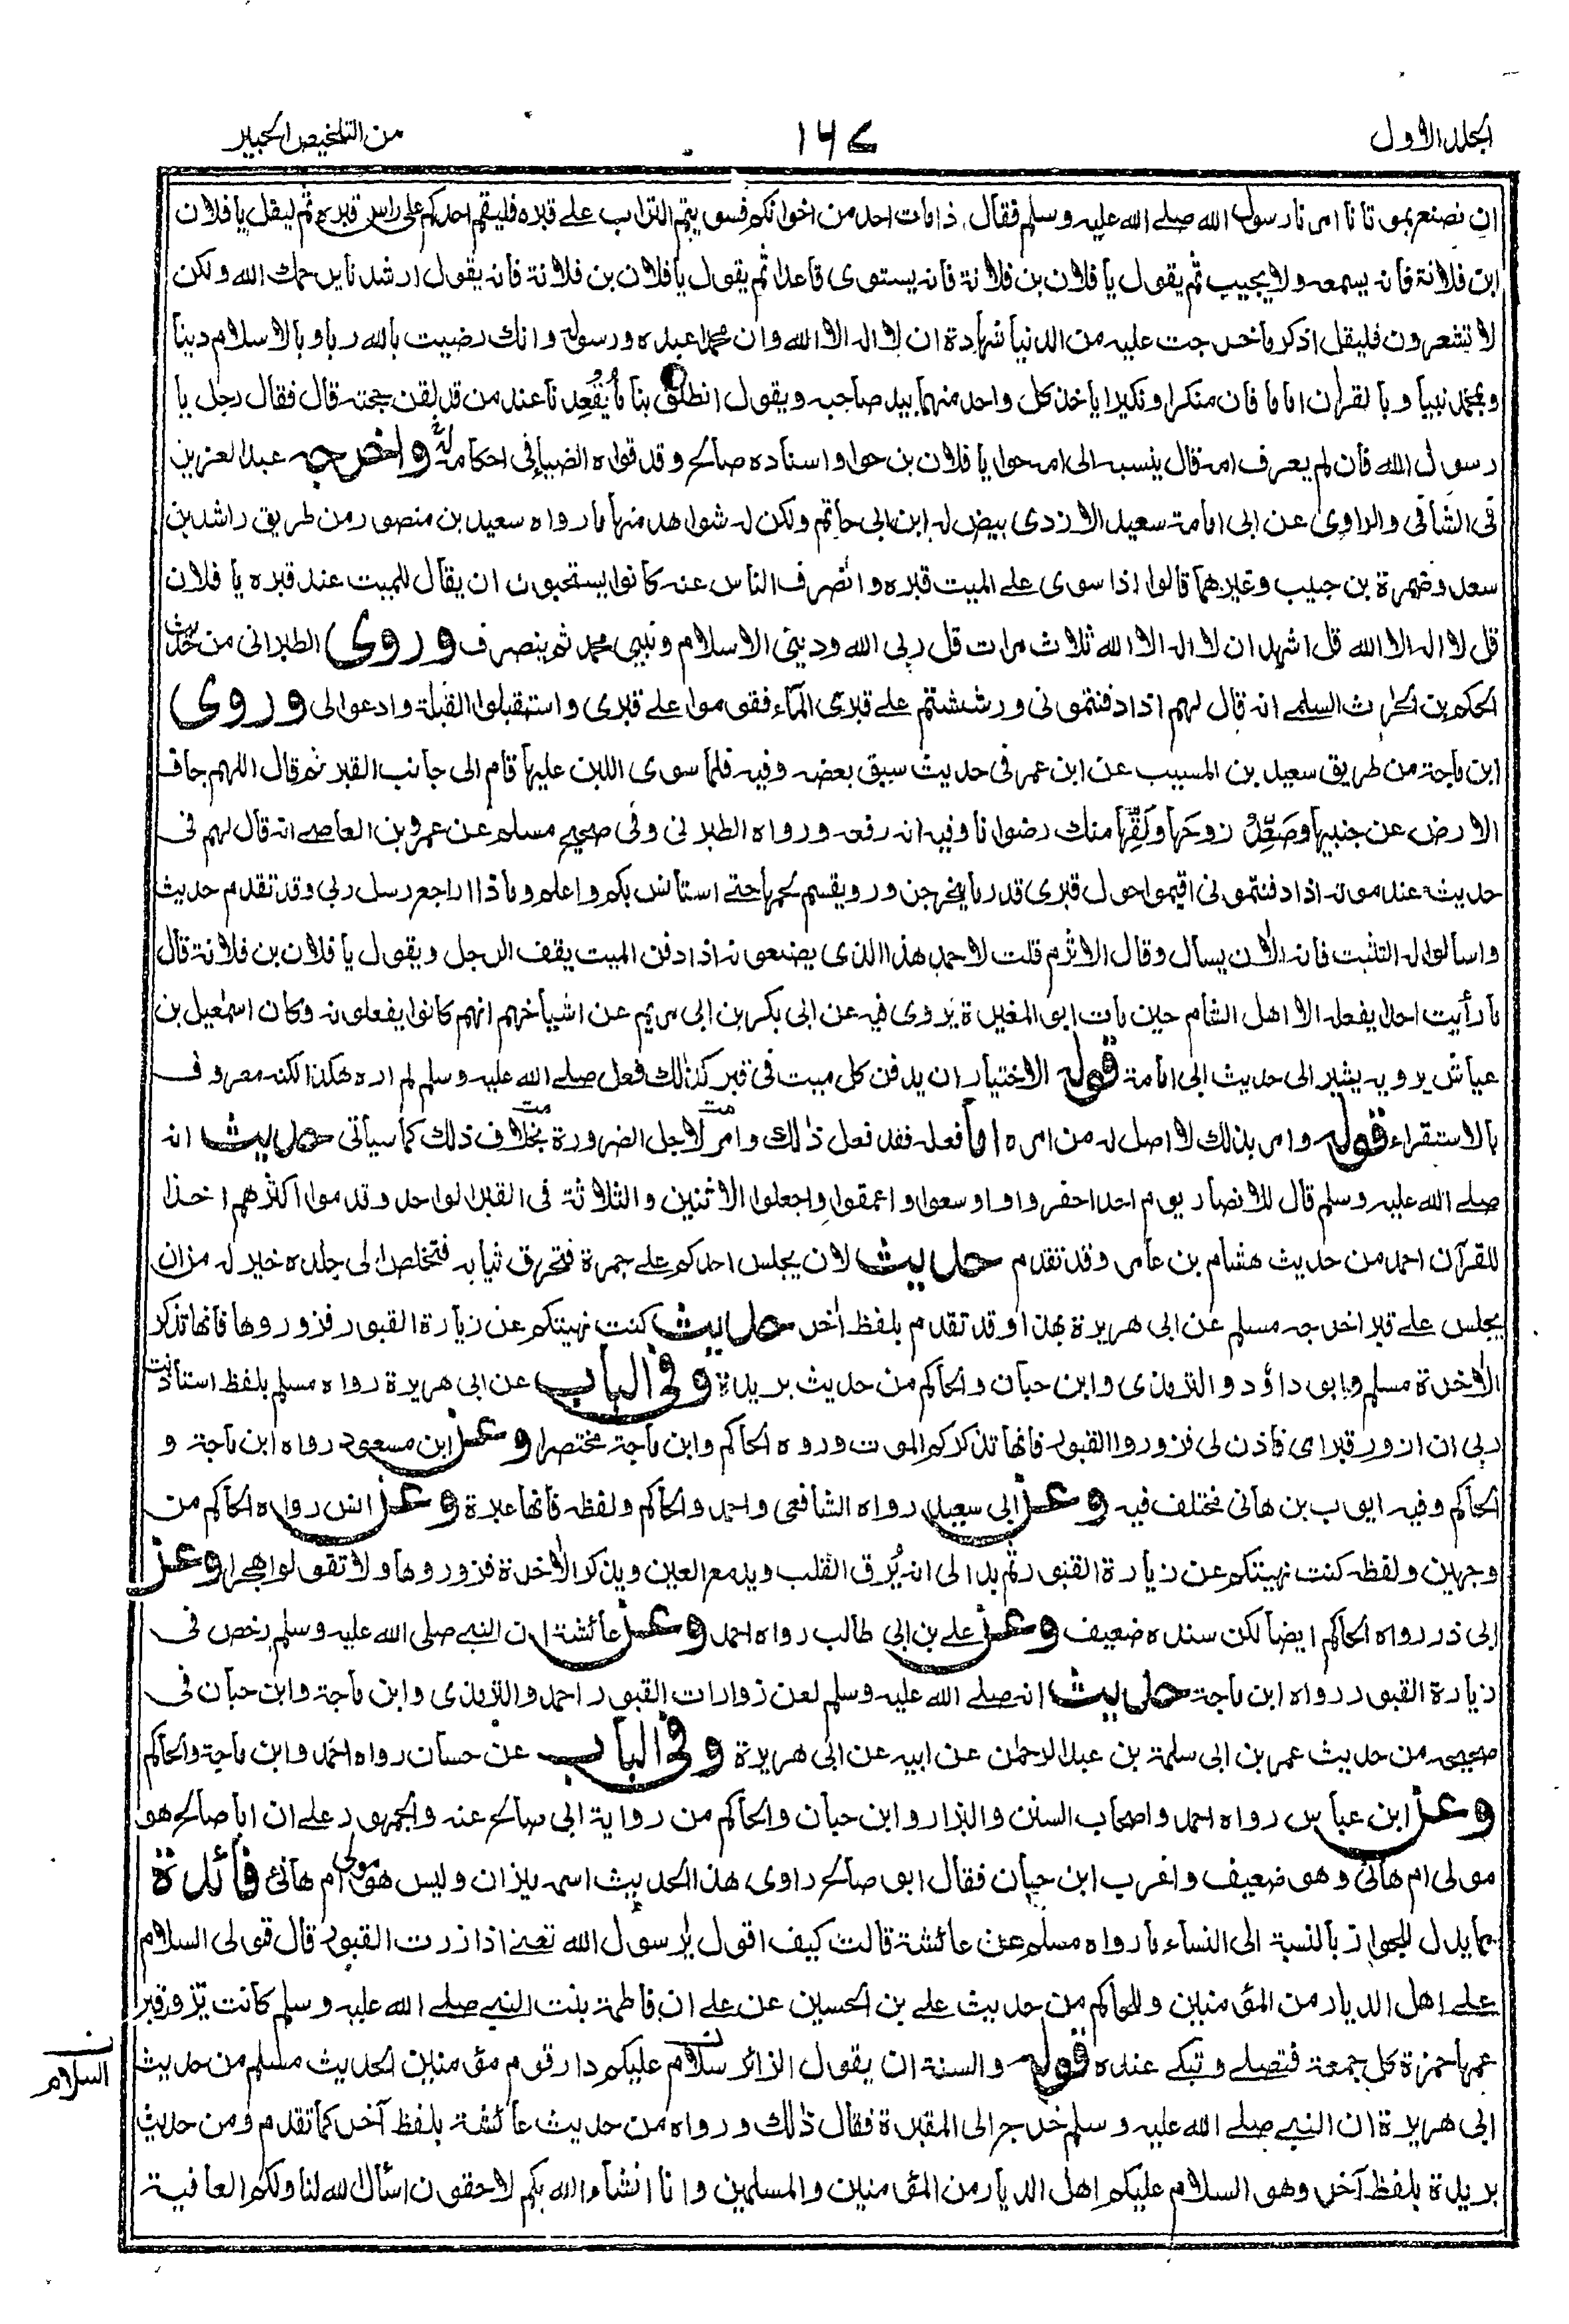 الجلد الاول
١٦٧
من التلخيص الحبير
ان نصنع بموتانا امرنا رسول الله صلے الله عليه وسلم فقال اذا مات احد من اخوانكم فسويتم التراب علے قبره فليقم احدكم على راس قبره ثم ليقل يا فلان
ابن فلانة فانه يسمعه ولا يجيب ثم يقول يا فلان بن فلانة فانه يستوى قاعدا ثم يقول يا فلان بن فلانة فانه يقول ارشدنا يرحمك الله ولكن
لا تشعرون فليقل اذكر ما خرجت عليه من الدنيا شهادة ان لا اله الا الله وان محمدا عبده ورسوله وانك رضيت بالله ربا وبالاسلام دينا
وبمحمد نبيا وبالقران اماما فان منكرا ونكيرا ياخذ كل واحد منهما بيد صاحبه ويقول انطلق بنا ما يُقْعِدنا عند من قد لقن حجته قال فقال رجل يا
رسول الله فان لم يعرف امه قال ينسبه الى امه حوا يا فلان بن حوا واسناده صالح وقد قواه الضياء فى احكامه واخرجه عبد العزيز
فى الشافى والراوى عن ابى امامة سعيد الازدى بيض له ابن ابى حاتم ولكن له شواهد منها ما رواه سعيد بن منصور من طريق راشد بن
سعد وضمرة بن حبيب وغيرهما قالوا اذا سوى علے الميت قبره وانصرف الناس عنه كانوا يستحبون ان يقال للميت عند قبره يا فلان
قل لا اله الا الله قل اشهد ان لا اله الا الله ثلاث مرات قل ربى الله ودينى الاسلام ونبيى محمد ثم ينصرف وروى الطبرانى من حديث
الحكم بن الحارث السلمے انه قال لهم اذا دفنتمونى ورششتم علے قبرى الماء فقوموا علے قبرى واستقبلوا القبلة وادعوا لى وروى
ابن ماجة من طريق سعيد بن المسيب عن ابن عمر فى حديث سبق بعضه وفيه فلما سوى اللبن عليها قام الى جانب القبر ثم قال اللهم جاف
الارض عن جنبيها وصَعِّدْ روحَها ولَقِّها منك رضوانا وفيه انه رفعه ورواه الطبرنى وفى صحيح مسلم عن عمرو بن العاصے انه قال لهم فى
حديث عند موته اذا دفنتمونى اقيموا حول قبرى قدر ما ينحر جزور ويقسم لحمها حتے استانس بكم واعلم ماذا اراجع رسل ربى وقد تقدم حديث
واسألوا له التثبت فانه الان يسال وقال الاثرم قلت لاحمد هذا الذى يصنعونه اذا دفن الميت يقف الرجل ويقول يا فلان بن فلانة قال
ما رأيت احدا يفعله الا اهل الشام حين مات ابو المغيرة يروى فيه عن ابى بكر بن ابى مريم عن اشياخهم انهم كانوا يفعلونه وكان اسمعيل بن
عياش يرويه يشير الى حديث ابى امامة قوله الاختيار ان يدفن كل ميت فى قبر كذلك فعل صلے الله عليه وسلم لم اره هكذا لكنه معروف
بالاستقراء قوله وامر بذلك لا اصل له من امره اما فعله فقد فعل ذلك وامر لاجل الضرورة بخلاف ذلك كما سيأتى حديث انه
صلے الله عليه وسلم قال للانصار يوم احد احفروا واوسعوا واعمقوا واجعلوا الاثنين والثلاثة فى القبر الواحد وقدموا اكثرهم اخذا
للقرآن احمد من حديث هشام بن عامر وقد تقدم حديث لان يجلس احدكم علے جمرة فتحرق ثيابه فتخلص الى جلده خير له من ان
يجلس علے قبر اخرجه مسلم عن ابى هريرة بهذا وقد تقدم بلفظ اخر حديث كنت نهيتكم عن زيارة القبور فزوروها فانها تذكر
الاخرة مسلم وابو داؤد والترمذى وابن حبان والحاكم من حديث بريدة وفى الباب عن ابى هريرة رواه مسلم بلفظ استأذنت
ربى ان ازور قبر امى فاذن لى فزوروا القبور فانها تذكركم الموت وروه الحاكم وابن ماجة مختصرا وعن ابن مسعود رواه ابن ماجة و
الحاكم وفيه ايوب بن هانى مختلف فيه وعن ابى سعيد رواه الشافعى واحمد والحاكم ولفظه فانها عبرة وعن انس رواه الحاكم من
وجهين ولفظه كنت نهيتكم عن زيارة القبور ثم بدا لى انه يُرق القلب ويدمع العين ويذكر الاخرة فزوروها ولا تقولوا هجرا وعن
ابى ذر رواه الحاكم ايضا لكن سنده ضعيف وعن علے بن ابى طالب رواه احمد وعن عائشة ان النبے صلى الله عليه وسلم رخص فى
زيارة القبور رواه ابن ماجة حديث انه صلے الله عليه وسلم لعن زوارات القبور احمد والترمذى وابن ماجة وابن حبان فى
صحيحه من حديث عمر بن ابى سلمة بن عبد الرحمن عن ابيه عن ابى هريرة وفى الباب عن حسان رواه احمد وابن ماجة والحاكم
وعن ابن عباس رواه احمد واصحاب السنن والبزار وابن حبان والحاكم من رواية ابى صالح عنه والجمهور علے ان ابا صالح هو
مولى ام هانئ وهو ضعيف واغرب ابن حبان فقال ابو صالح راوى هذا الحديث اسمه ميزان وليس هو مولى ام هانئ فائدة
مما يدل للجواز بالنسبة الى النساء ما رواه مسلم عن عائشة قالت كيف اقول يا رسول الله تعنے اذا زرت القبور قال قولى السلام
علے اهل الديار من المؤمنين وللحاكم من حديث علے بن الحسين عن علے ان فاطمة بنت النبے صلے الله عليه وسلم كانت تزور قبر
عمها حمزة كل جمعة فتصلے وتبكے عنده قوله والسنة ان يقول الزائر سلام عليكم دار قوم مؤمنين الحديث مسلم من حديث
السلام
ابى هريرة ان النبے صلے الله عليه وسلم خرج الى المقبرة فقال ذلك ورواه من حديث عائشة بلفظ آخر كما تقدم ومن حديث
بريدة بلفظ آخر وهو السلام عليكم اهل الديار من المؤمنين والمسلمين وانا انشاء الله بكم لاحقون اسأل الله لنا ولكم العافية